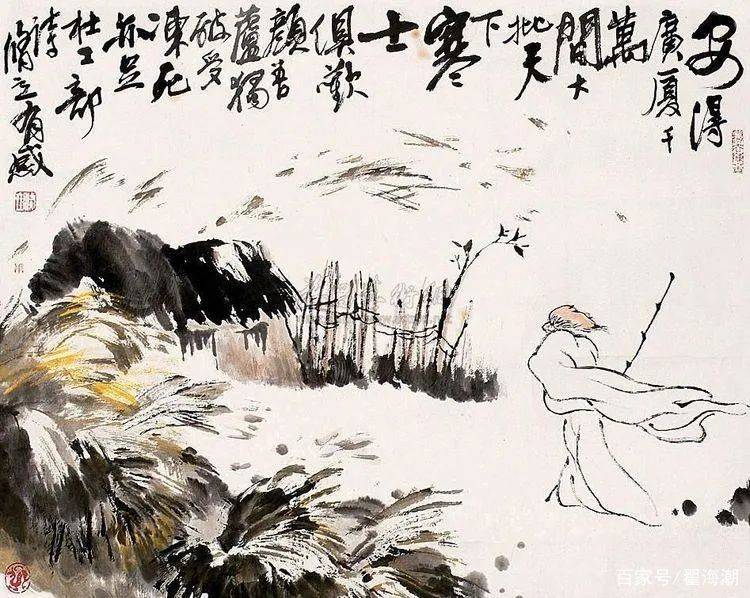 安得
廣厦千
萬
間大
批天
下
寒
士
俱歡
顏吾
蘆獨
破受
凍死
亦足
杜工部
詩
有感
百家号/瞿海潮